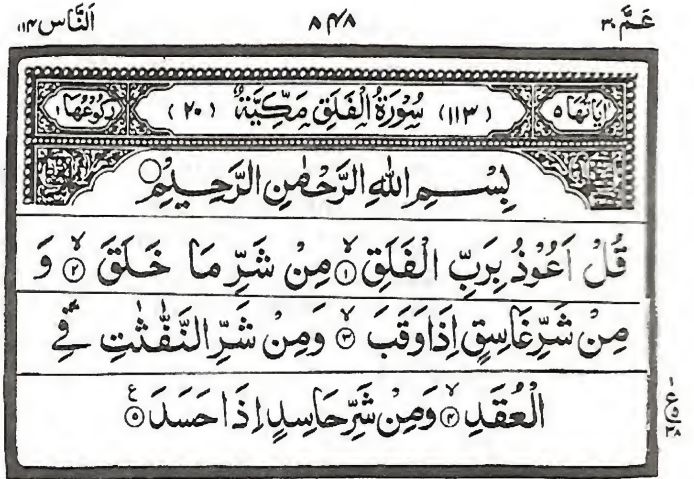 عَمَّ ۳۰ ۸۴۸ اَلنَّاس ۱۱۴
اٰيَاتُهَا ۵ (۱۱۳) سُوْرَةُ الْفَلَقِ مَكِّيَّةٌ (۲۰) رُكُوْعُهَا ۱
بِسْمِ اللهِ الرَّحْمٰنِ الرَّحِيْمِ
قُلْ اَعُوْذُ بِرَبِّ الْفَلَقِ ۙ﴿۱﴾ مِنْ شَرِّ مَا خَلَقَ ۙ﴿۲﴾ وَ
مِنْ شَرِّ غَاسِقٍ اِذَا وَقَبَ ۙ﴿۳﴾ وَمِنْ شَرِّ النَّفّٰثٰتِ فِي
الْعُقَدِ ۙ﴿۴﴾ وَمِنْ شَرِّ حَاسِدٍ اِذَا حَسَدَ ﴿۵﴾ ع